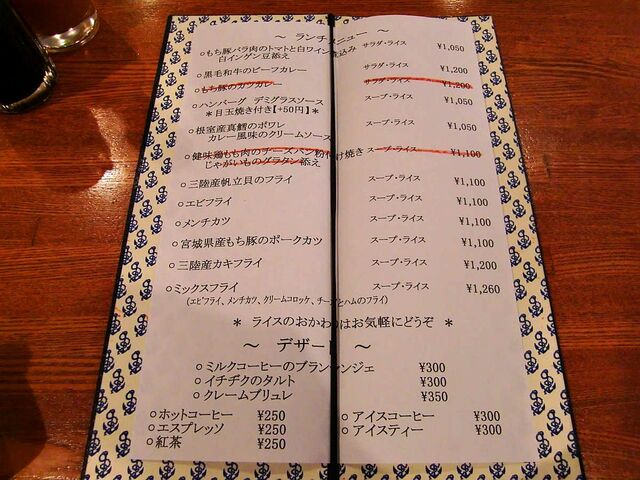 ～ ランチメニュー ～
○もち豚バラ肉のトマトと白ワイン煮込み サラダ・ライス ¥1,050
白インゲン豆添え
○黒毛和牛のビーフカレー サラダ・ライス ¥1,200
○もち豚のカツカレー サラダ・ライス ¥1,200
○ハンバーグ デミグラスソース スープ・ライス ¥1,050
＊目玉焼き付き【+50円】＊
○根室産真鱈のポワレ スープ・ライス ¥1,050
カレー風味のクリームソース
○健味鶏もも肉のチーズパン粉付け焼き スープ・ライス ¥1,100
じゃがいものグラタン添え
○三陸産帆立貝のフライ スープ・ライス ¥1,100
○エビフライ スープ・ライス ¥1,100
○メンチカツ スープ・ライス ¥1,100
○宮城県産もち豚のポークカツ スープ・ライス ¥1,100
○三陸産カキフライ スープ・ライス ¥1,200
○ミックスフライ スープ・ライス ¥1,260
(エビフライ、メンチカツ、クリームコロッケ、チーズとハムのフライ)
＊ ライスのおかわりはお気軽にどうぞ ＊
～ デザート ～
○ミルクコーヒーのブランマンジェ ¥300
○イチヂクのタルト ¥300
○クレームブリュレ ¥350
○ホットコーヒー ¥250 ○アイスコーヒー ¥300
○エスプレッソ ¥250 ○アイスティー ¥300
○紅茶 ¥250